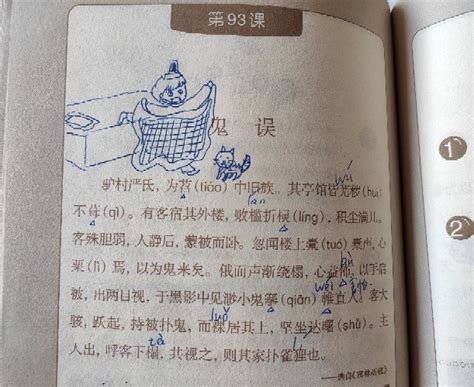 第93课
鬼 误
驴村严氏，为苕(tiáo)中旧族。其亭馆皆光秽(huì)
不侔(qì)。有客宿其外楼，败槛折棂(líng)，积尘满几。
客殊胆弱，人静后，蒙被而卧。忽闻楼上橐(tuó)橐声，心
栗(lì)焉，以为鬼来矣。俄而声渐绕榻，心益怖，以手启
被，出两目视，于黑影中见渺小鬼搴(qiān)帷直入。客大
骇，跃起，持被扑鬼，而裸居其上，坚坐达曙(shǔ)。主
人出，呼客下榻，共视之，则其家扑雀狸也。